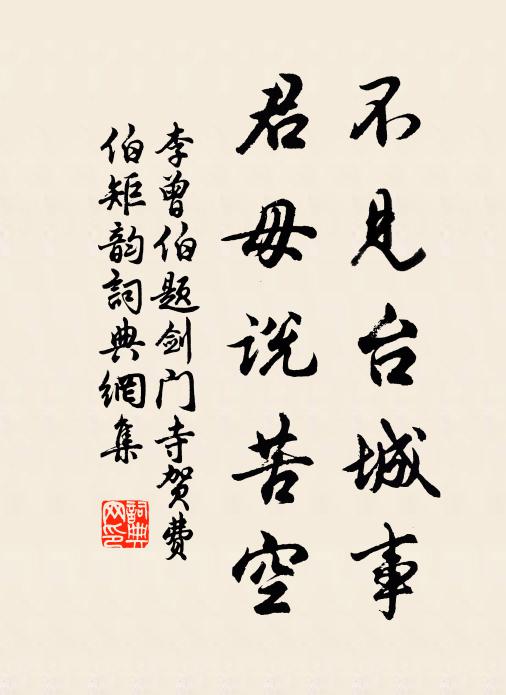 不见台城事
君毋说苦空
李曾伯题剑门寺贺费
伯矩韵词典網集
詞典
网印